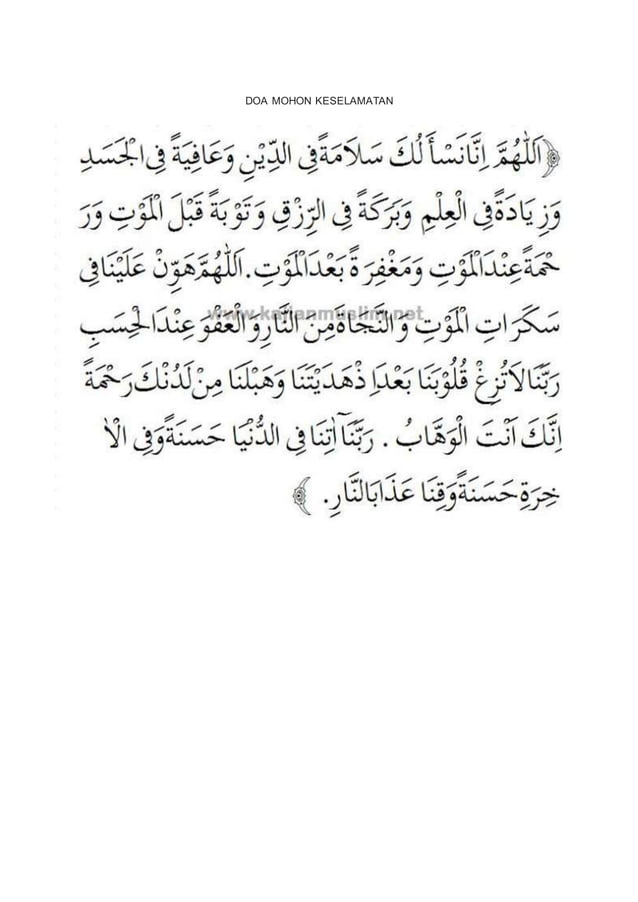 DOA MOHON KESELAMATAN
﴿اَللّٰهُمَّ اِنَّانَسْأَلُكَ سَلَامَةً فِى الدِّيْنِ وَعَافِيَةً فِى الْجَسَدِ
وَزِيَادَةً فِى الْعِلْمِ وَبَرَكَةً فِى الرِّزْقِ وَتَوْبَةً قَبْلَ الْمَوْتِ وَرَ
حْمَةً عِنْدَ الْمَوْتِ وَمَغْفِرَةً بَعْدَ الْمَوْتِ. اَللّٰهُمَّ هَوِّنْ عَلَيْنَا فِى
سَكَرَاتِ الْمَوْتِ وَالنَّجَاةَ مِنَ النَّارِ وَالْعَفْوَ عِنْدَ الْحِسَبِ
www.kajianmuslim.net
رَبَّنَا لَا تُزِغْ قُلُوْبَنَا بَعْدَ اِذْهَدَيْتَنَا وَهَبْلَنَا مِنْ لَدُنْكَ رَحْمَةً
اِنَّكَ اَنْتَ الْوَهَّابُ . رَبَّنَآ اٰتِنَا فِى الدُّنْيَا حَسَنَةً وَفِى الْاٰ
خِرَةِ حَسَنَةً وَقِنَا عَذَابَالنَّارِ. ﴾